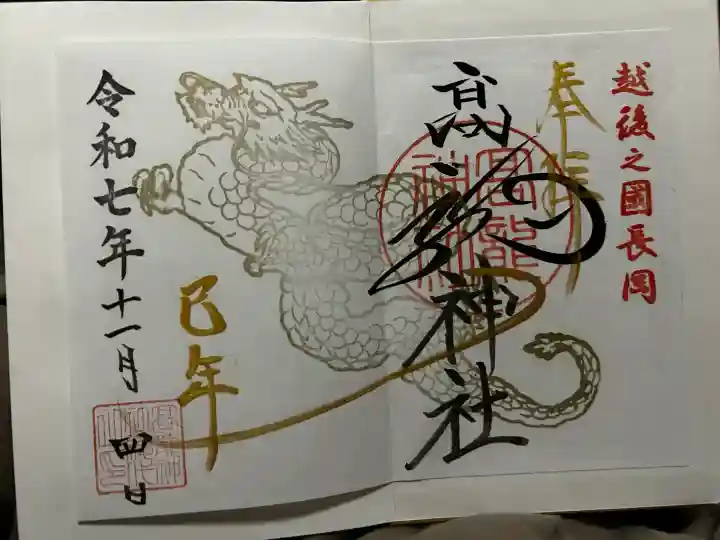 越後之國長岡
奉拝
高龍神社
高龍
神社
巳年
令和七年十一月
四日